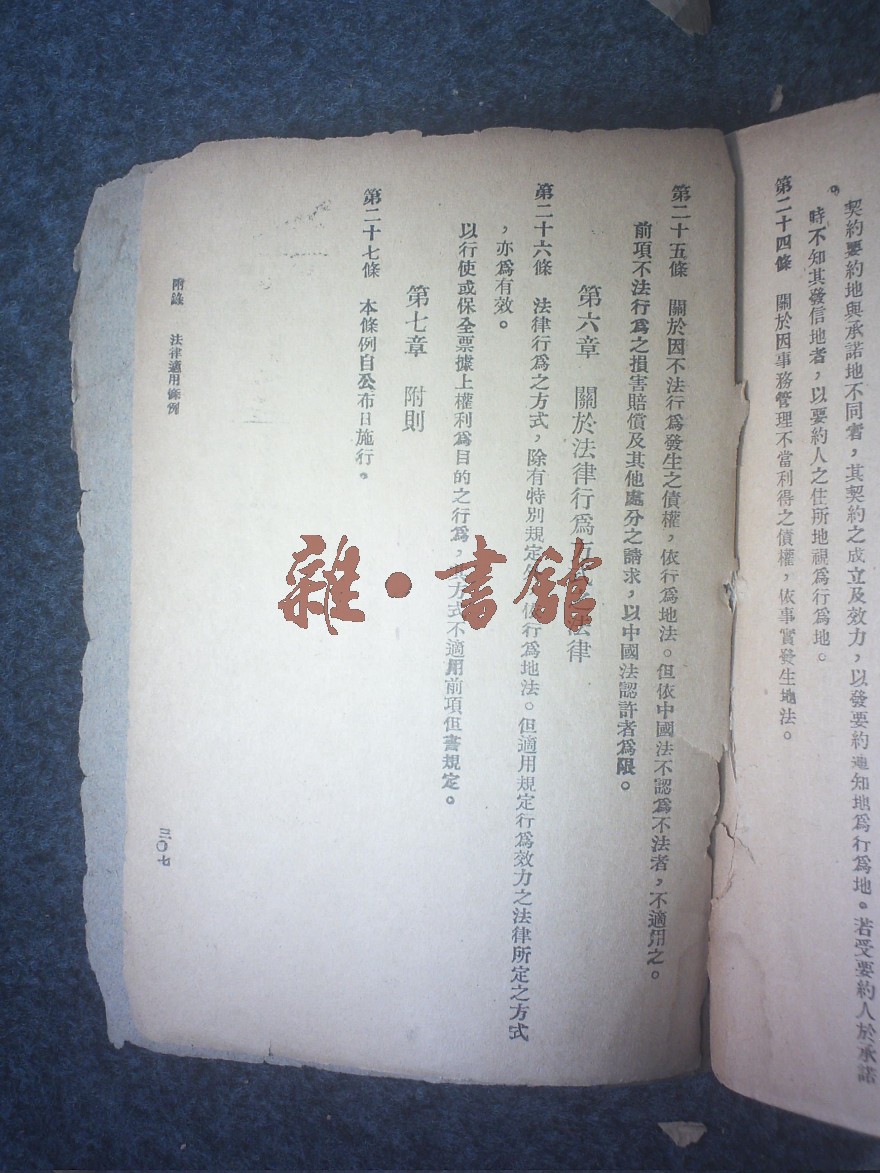 契約要約地與承諾地不同者，其契約之成立及效力，以發要約通知地爲行爲地。若受要約人於承諾
時不知其發信地者，以要約人之住所地視爲行爲地。
第二十四條　關於因事務管理不當利得之債權，依事實發生地法。
第二十五條　關於因不法行爲發生之債權，依行爲地法。但依中國法不認爲不法者，不適用之。
前項不法行爲之損害賠償及其他處分之請求，以中國法認許者爲限。
第六章　關於法律行爲方式之法律
第二十六條　法律行爲之方式，除有特別規定外，依行爲地法。但適用規定行爲效力之法律所定之方式
，亦爲有效。
以行使或保全票據上權利爲目的之行爲，其方式不適用前項但書規定。
第七章　附則
第二十七條　本條例自公布日施行。
附錄　法律適用條例
三〇七
雜·書館